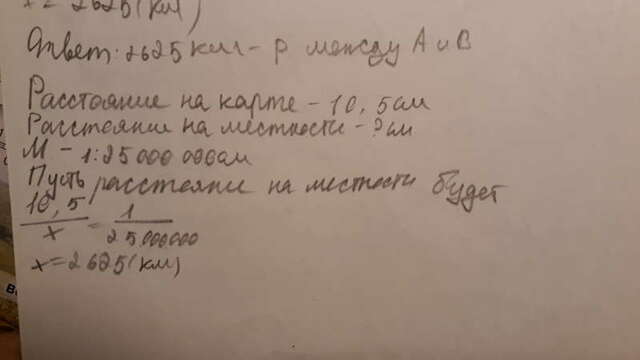 x = 2625 (км)
Ответ: 2625 км - р между А и В
Расстояние на карте - 10,5 см
Расстояни на местности - ? см
М - 1:25 000 000см
Пусть расстояни на местности будет
10,5 / x = 1 / 25 000 000
x = 2625 (км)